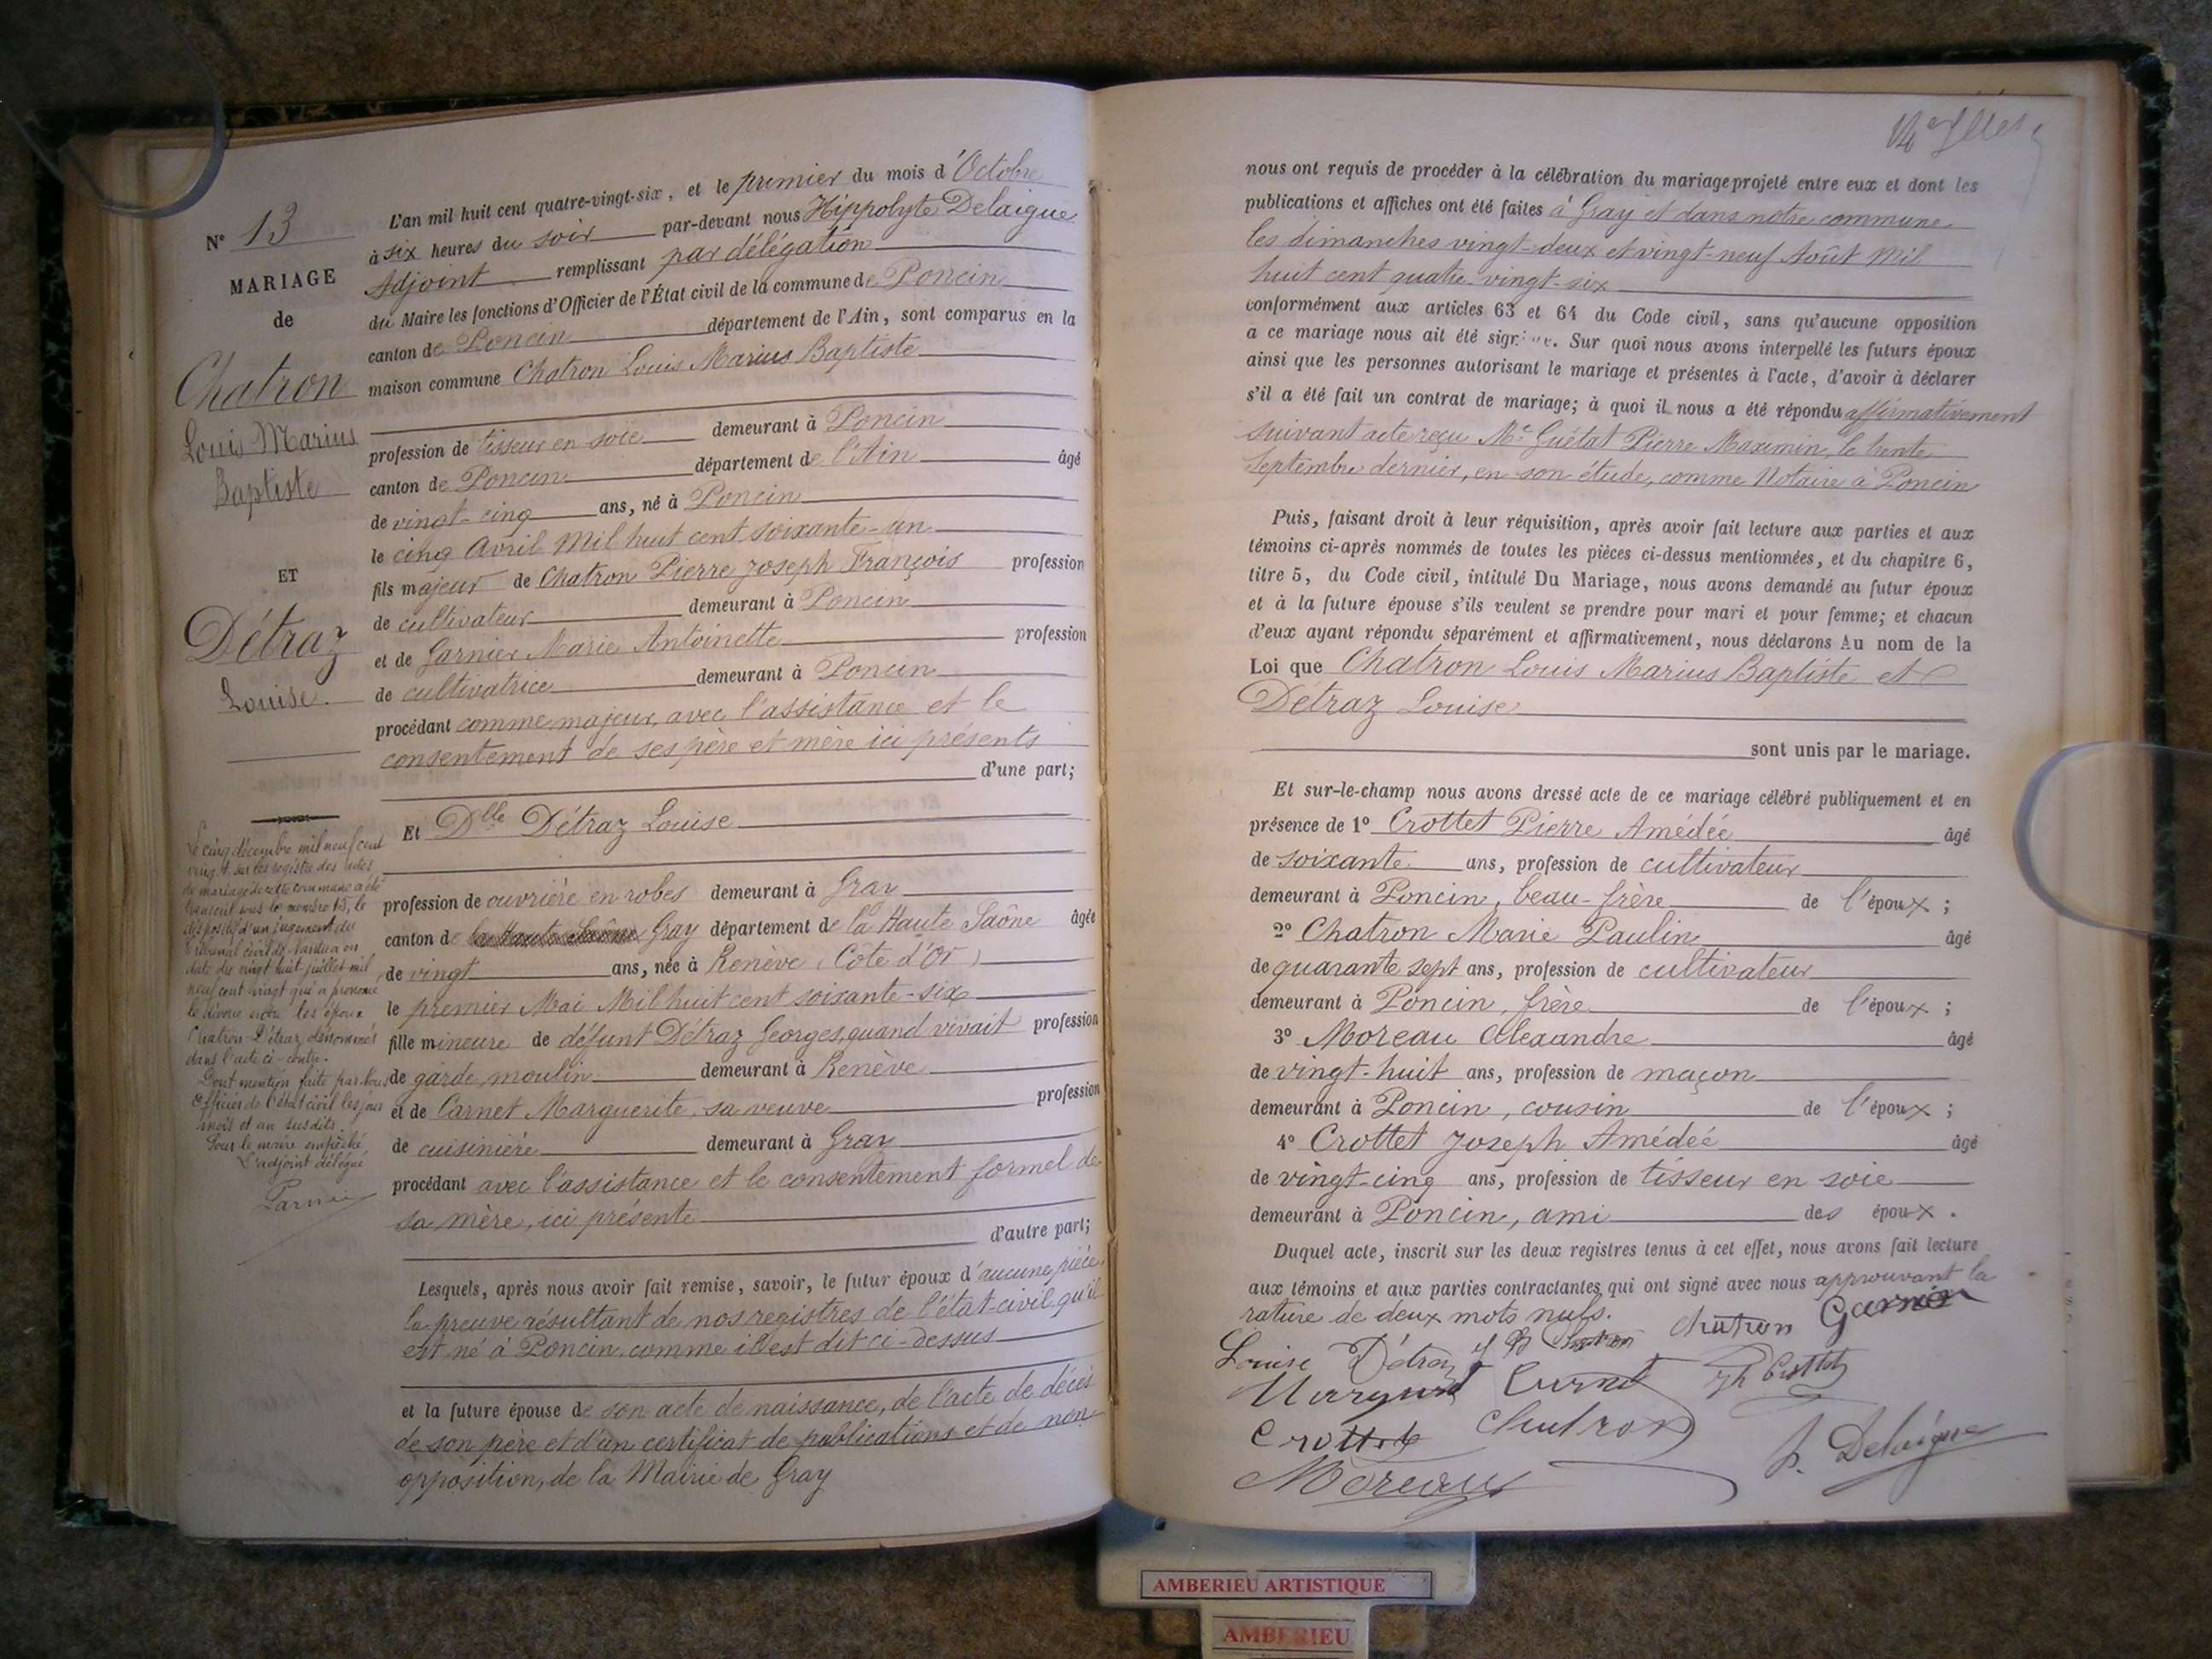 N° 13
MARIAGE
de
Chatron
Louis Marius
Baptiste
ET
Détraz
Louise.
Le cinq décembre mil neuf cent
vingt, sur les registres des actes
de mariage de cette commune a été
transcrit sous le numéro 15, le
dispositif d'un jugement du
tribunal civil de Nantua en
date du vingt huit juillet mil
neuf cent vingt qui a prononcé
le divorce entre les époux
Chatron-Détraz dénommés
dans l'acte ci-contre.
Dont mention faite par Nous
Officier de l'état civil les jour
mois et an susdits.
Pour le maire empêché
L'adjoint délégué
L'an mil huit cent quatre-vingt-six, et le premier du mois d'Octobre
à six heures du soir par-devant nous Hippolyte Delaigue
Adjoint remplissant par délégation
du Maire les fonctions d'Officier de l'État civil de la commune de Poncin
canton de Poncin département de l'Ain, sont comparus en la
maison commune Chatron Louis Marius Baptiste
profession de tisseur en soie demeurant à Poncin
canton de Poncin département de l'Ain âgé
de vingt-cinq ans, né à Poncin
le cinq Avril Mil huit cent soixante-un
fils majeur de Chatron Pierre Joseph François profession
de cultivateur demeurant à Poncin
et de Garnier Marie Antoinette profession
de cultivatrice demeurant à Poncin
procédant comme majeur, avec l'assistance et le
consentement de ses père et mère ici présents
d'une part;
Et Dlle Détraz Louise
profession de ouvrière en robes demeurant à Gray
canton de la Haute Saône Gray département de la Haute Saône âgée
de vingt ans, née à Renève (Côte d'Or)
le premier Mai Mil huit cent soixante-six
fille mineure de défunt Détraz Georges, quand vivait profession
de garde moulin demeurant à Renève
et de Carnet Marguerite, sa veuve profession
de cuisinière demeurant à Gray
procédant avec l'assistance et le consentement formel de
sa mère, ici présente
d'autre part;
Lesquels, après nous avoir fait remise, savoir, le futur époux d'aucune pièce,
la preuve résultant de nos registres de l'état-civil qu'il
est né à Poncin comme il est dit ci-dessus
et la future épouse de son acte de naissance, de l'acte de décès
de son père et d'un certificat de publications et de non-
opposition, de la Mairie de Gray
nous ont requis de procéder à la célébration du mariage projeté entre eux et dont les
publications et affiches ont été faites à Gray et dans notre commune
les dimanches vingt-deux et vingt-neuf Août Mil
huit cent quatre-vingt-six
conformément aux articles 63 et 64 du Code civil, sans qu'aucune opposition
à ce mariage nous ait été signifiée. Sur quoi nous avons interpellé les futurs époux
ainsi que les personnes autorisant le mariage et présentes à l'acte, d'avoir à déclarer
s'il a été fait un contrat de mariage; à quoi il nous a été répondu affirmativement
suivant acte reçu Me Guétat Pierre Maximin, le trente
Septembre dernier, en son étude, comme Notaire à Poncin
Puis, faisant droit à leur réquisition, après avoir fait lecture aux parties et aux
témoins ci-après nommés de toutes les pièces ci-dessus mentionnées, et du chapitre 6,
titre 5, du Code civil, intitulé Du Mariage, nous avons demandé au futur époux
et à la future épouse s'ils veulent se prendre pour mari et pour femme; et chacun
d'eux ayant répondu séparément et affirmativement, nous déclarons Au nom de la
Loi que Chatron Louis Marius Baptiste et
Détraz Louise
sont unis par le mariage.
Et sur-le-champ nous avons dressé acte de ce mariage célébré publiquement et en
présence de 1° Crottet Pierre Amédée âgé
de soixante ans, profession de cultivateur
demeurant à Poncin, beau-frère de l'époux;
2° Chatron Marie Paulin âgé
de quarante sept ans, profession de cultivateur
demeurant à Poncin, frère de l'époux;
3° Moreau Alexandre âgé
de vingt-huit ans, profession de maçon
demeurant à Poncin, cousin de l'époux;
4° Crottet Joseph Amédée âgé
de vingt-cinq ans, profession de tisseur en soie
demeurant à Poncin, ami des époux.
Duquel acte, inscrit sur les deux registres tenus à cet effet, nous avons fait lecture
aux témoins et aux parties contractantes qui ont signé avec nous approuvant la
rature de deux mots nuls.
Chatron Garnier
Louise Détraz
Carnet
Crottet Chatron
Moreau
h. Delaigue
AMBERIEU ARTISTIQUE
AMBERIEU